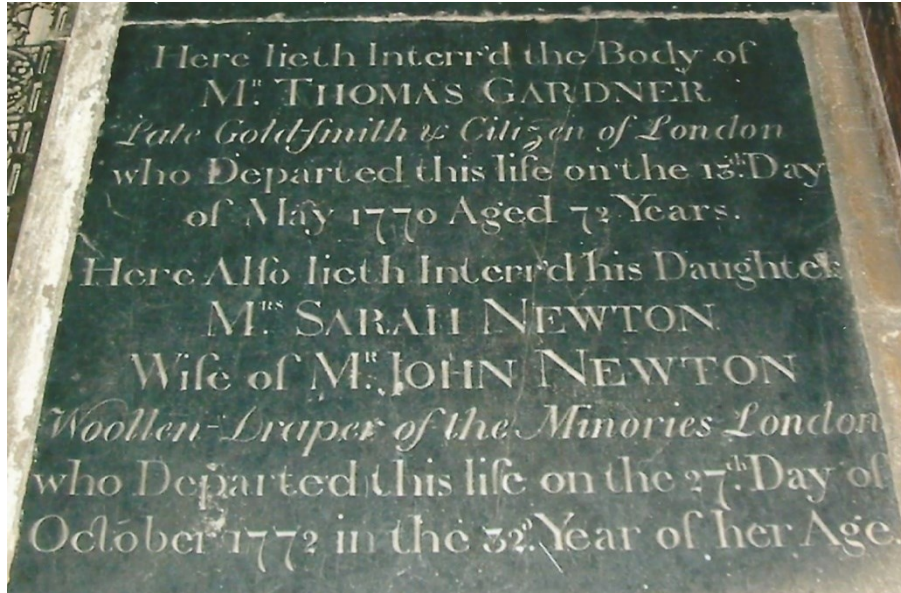 Here lieth Interr'd the Body of
Mr. THOMAS GARDNER
Late Gold-ſmith & Citizen of London
who Departed this life on the 13th. Day
of May 1770 Aged 72 Years.
Here Alſo lieth Interr'd his Daughter
Mrs SARAH NEWTON
Wife of Mr. JOHN NEWTON
Woollen-Draper of the Minories London
who Departed this life on the 27th. Day of
October 1772 in the 32d. Year of her Age.